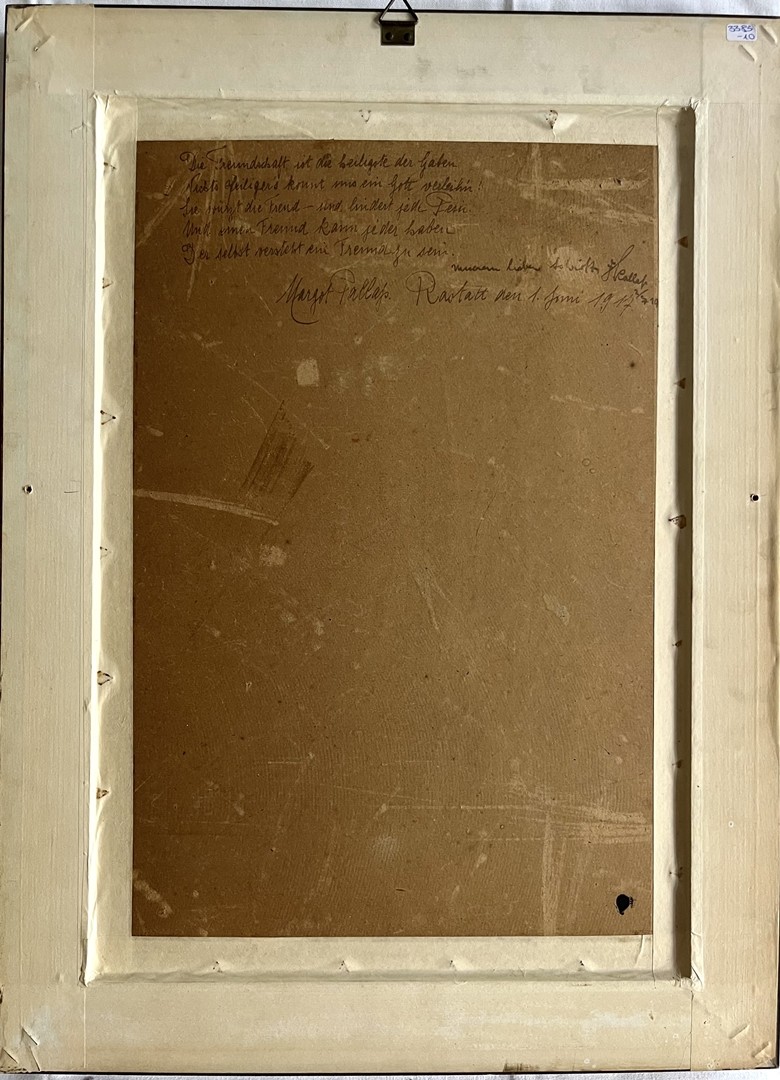 3385
-10
Die Freundschaft ist die heiligste der Gaben
Nichts heiligers konnt uns ein Gott verleihn!
Sie würzt die Freud – und lindert jede Pein.
Und einen Freund kann jeder haben
Der selbst versteht ein Freund zu sein.
Margot Pallas. Rastatt den 1. Juni 1917